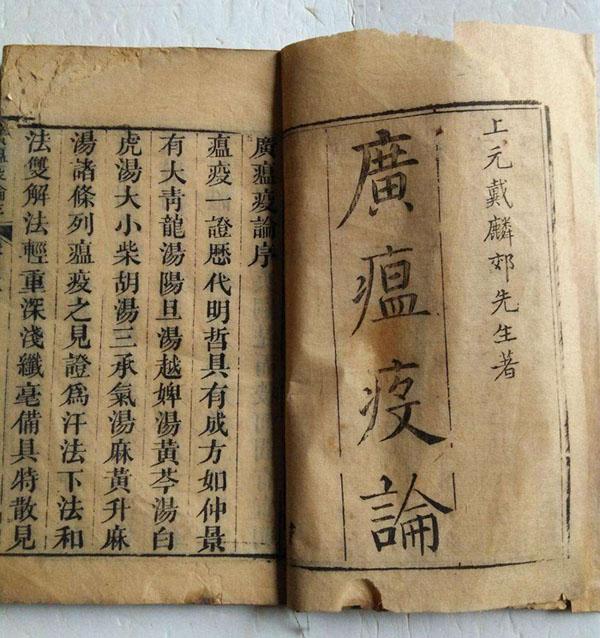 上元戴麟郊先生著
廣瘟疫論
廣瘟疫論序
瘟疫一證歷代明哲具有成方如仲景
有大青龍湯陽旦湯越婢湯黃芩湯白
虎湯大小柴胡湯三承氣湯麻黃升麻
湯諸條列瘟疫之見證爲汗法下法和
法雙解法輕重深淺纖毫備具特散見